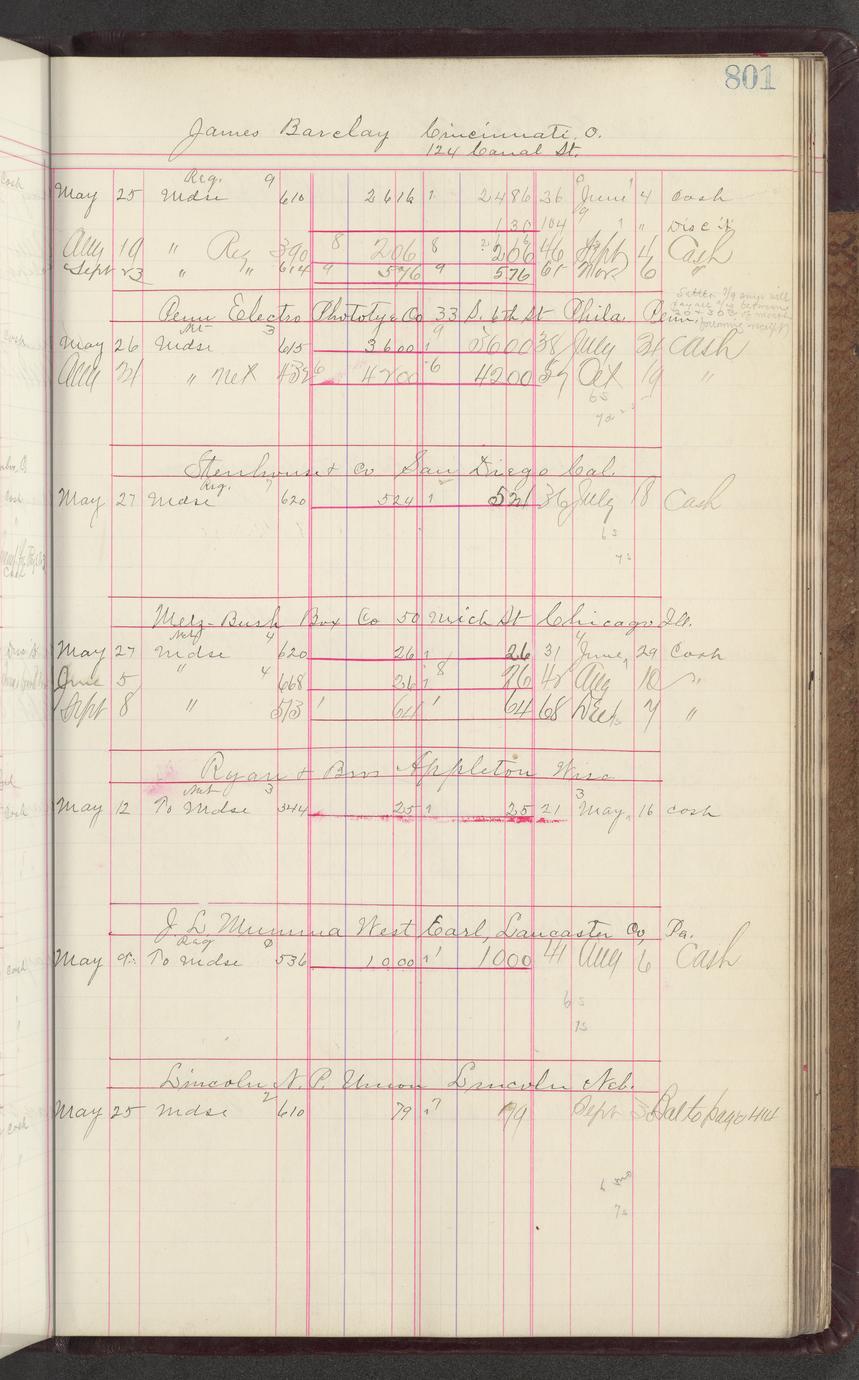 801
James Barclay Cincinnati, O.
124 Canal St.
Reg. 9
May 25 Mdse 610 2616 1 2486 36 June 4 Cash
130 104 " " Disc't
Aug 19 " Reg 390 8 206 8 206 46 Sept 4 Cash
Sept 23 " " 614 9 576 9 576 61 Nov 6 "
Penn Electro Phototype Co 33 S. 6th St Phila. Penn.
Net 3
May 26 Mdse 615 3600 1 9 3600 38 July 31 Cash
Aug 31 " Net 439 6 4200 6 4200 57 Oct 19 "
6s
7s
Stenhouse & Co San Diego Cal.
Reg. 7
May 27 Mdse 620 524 1 524 36 July 18 Cash
6s
7s
Metz-Bush Box Co 50 Mich St Chicago Ill.
Net 4
May 27 Mdse 620 26 1 26 31 June 29 Cash
June 5 " 4 668 26 1 8 26 42 Aug 10 "
Sept 8 " 513 1 64 1 64 68 Dec 7 "
Ryan & Bros Appleton Wisc
Net 3 3
May 12 To Mdse 544 25 1 25 21 May 16 Cash
J. L. Mumma West Earl, Lancaster Co, Pa.
Reg
May To Mdse 536 1000 1 1000 41 Aug 6 Cash
6s
7s
Lincoln N. P. Union Lincoln Neb.
May 25 Mdse 2 610 79 1 7 79 Sept 30 Bal to page 414
6
7s